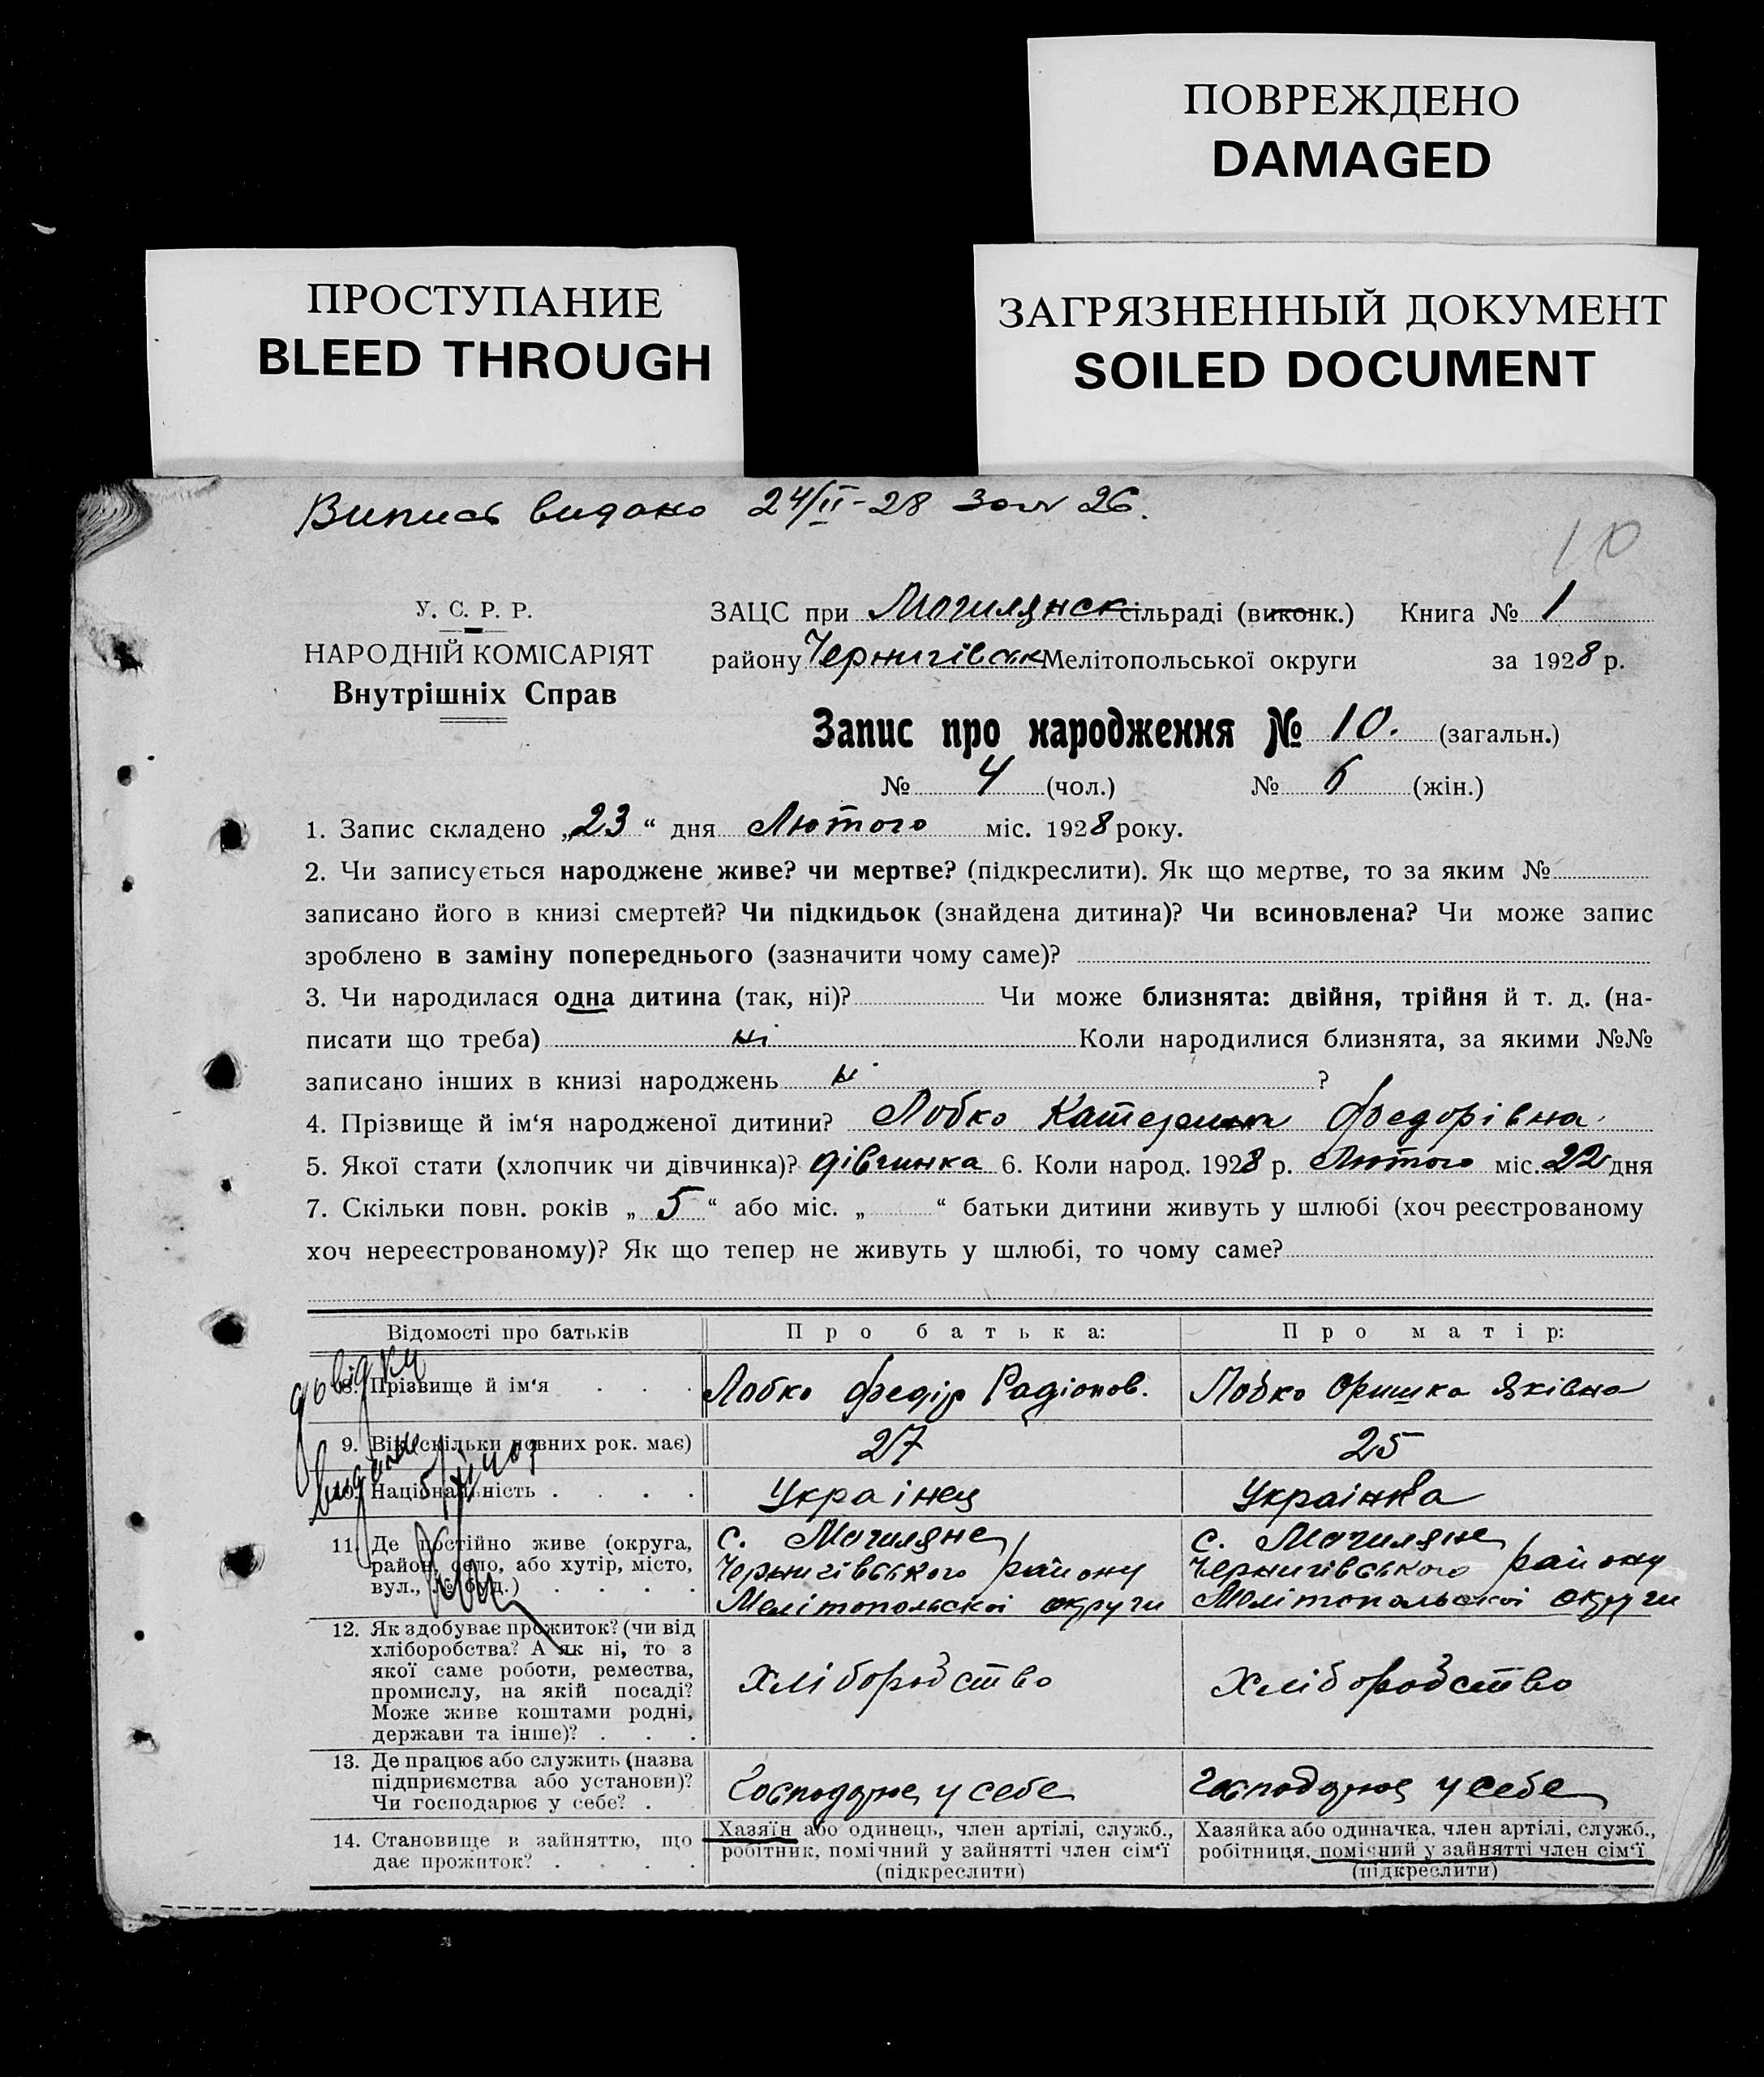 ПОВРЕЖДЕНО
DAMAGED
ПРОСТУПАНИЕ
BLEED THROUGH
ЗАГРЯЗНЕННЫЙ ДОКУМЕНТ
SOILED DOCUMENT
Випись видано 24/II-28 за № 26.
10
У. С. Р. Р.
НАРОДНІЙ КОМІСАРІЯТ
Внутрішніх Справ
ЗАЦС при Могилянск сільраді (виконк.) Книга № 1
району Чернигівськ Мелітопольської округи за 1928 р.
Запис про народження № 10. (загальн.)
№ 4 (чол.) № 6 (жін.)
1. Запис складено „23“ дня Лютого міс. 1928 року.
2. Чи записується народжене живе? чи мертве? (підкреслити). Як що мертве, то за яким №
записано його в книзі смертей? Чи підкидьок (знайдена дитина)? Чи всиновлена? Чи може запис
зроблено в заміну попереднього (зазначити чому саме)?
3. Чи народилася одна дитина (так, ні)? Чи може близнята: двійня, трійня й т. д. (на-
писати що треба) ні Коли народилися близнята, за якими №№
записано інших в книзі народжень ні ?
4. Прізвище й ім‘я народженої дитини? Лобко Катерина Федорівна
5. Якої стати (хлопчик чи дівчинка)? дівчинка 6. Коли народ. 1928 р. Лютого міс. 22 дня
7. Скільки повн. років „ 5 “ або міс. „ “ батьки дитини живуть у шлюбі (хоч реєстрованому
хоч нереєстрованому)? Як що тепер не живуть у шлюбі, то чому саме?
Відомості про батьків
Про батька:
Про матір:
довідку
видано
8. Прізвище й ім‘я . . .
Лобко Федір Радіонов.
Лобко Оришка Яківна
9. Вік (скільки повних рок. має)
27
25
10. Національність . . . .
Украінец
Украінка
11. Де постійно живе (округа,
район, село, або хутір, місто,
вул., № буд.) . . . .
с. Могиляне
Чернигівського району
Мелітопольскоі округи
с. Могиляне
Чернигівського району
Мелітопольскоі округи
12. Як здобуває прожиток? (чи від
хліборобства? А як ні, то з
якої саме роботи, ремества,
промислу, на якій посаді?
Може живе коштами родні,
держави та інше)? . . .
Хліборобство
Хліборобство
13. Де працює або служить (назва
підприємства або установи)?
Чи господарює у себе? .
Господарює у себе
Господарює у себе
14. Становище в зайняттю, що
дає прожиток? . . . .
Хазяїн або одинець, член артілі, служб.,
робітник, помічний у зайнятті член сім‘ї
(підкреслити)
Хазяйка або одиначка, член артілі, служб.,
робітниця, помічний у зайнятті член сім‘ї
(підкреслити)